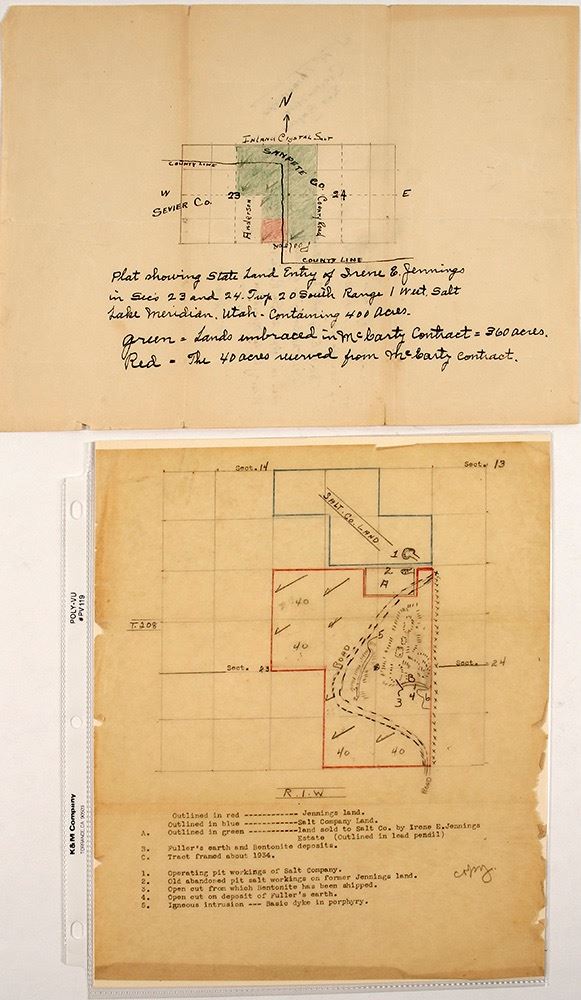 N
Inland Crystal Salt
COUNTY LINE
SANPETE CO.
W
23
24
E
SEVIER CO.
Anderson
County Road
COUNTY LINE
Plat showing State Land Entry of Irene E. Jennings
in Secs 23 and 24. Twp. 20 South Range 1 West, Salt
Lake Meridian, Utah - Containing 400 acres.
green = Lands embraced in McCarty Contract = 360 acres.
Red = The 40 acres reserved from McCarty contract.
POLY-VU
#PV119
K&M Company
TORRANCE, CA 90503
Sect. 14
Sect. 13
SALT. CO. LAND
1
2
A
40
T.20S
5
40
ROAD
Sect. 23
Sect. 24
B
3
4
6
40
40
ROAD
R.I.W
Outlined in red ------------ Jennings land.
Outlined in blue ------------Salt Company Land.
A. Outlined in green -----------land sold to Salt Co. by Irene E.Jennings
Estate (Outlined in lead pencil)
B. Fuller's earth and Bentonite deposits.
C. Tract framed about 1934.
1. Operating pit workings of Salt Company.
2. Old abandoned pit salt workings on former Jennings land.
3. Open cut from which Bentonite has been shipped.
4. Open cut on deposit of Fuller's earth.
5. Igneous intrusion --- Basic dyke in porphyry.
copy.